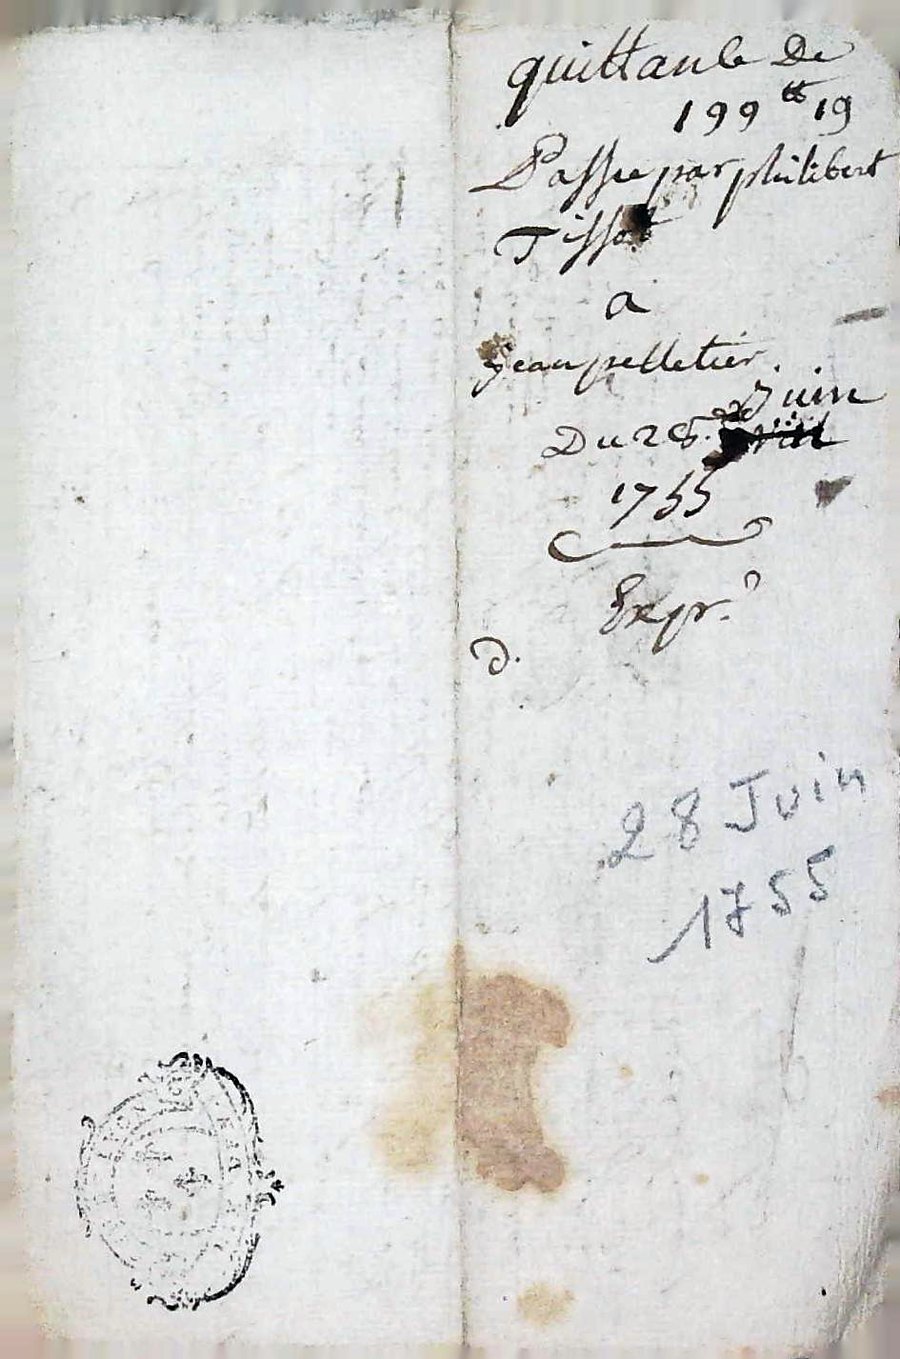 quittance De
199 ₶ 19
Passee par philibert
Tissot
a
Jean pelletier.
Juin
Du 28.
1755
Expr.
d.
28 Juin
1755
LYON